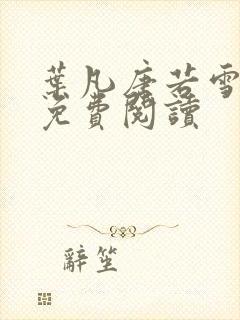 葉凡唐若雪
免費閱讀
辭笙